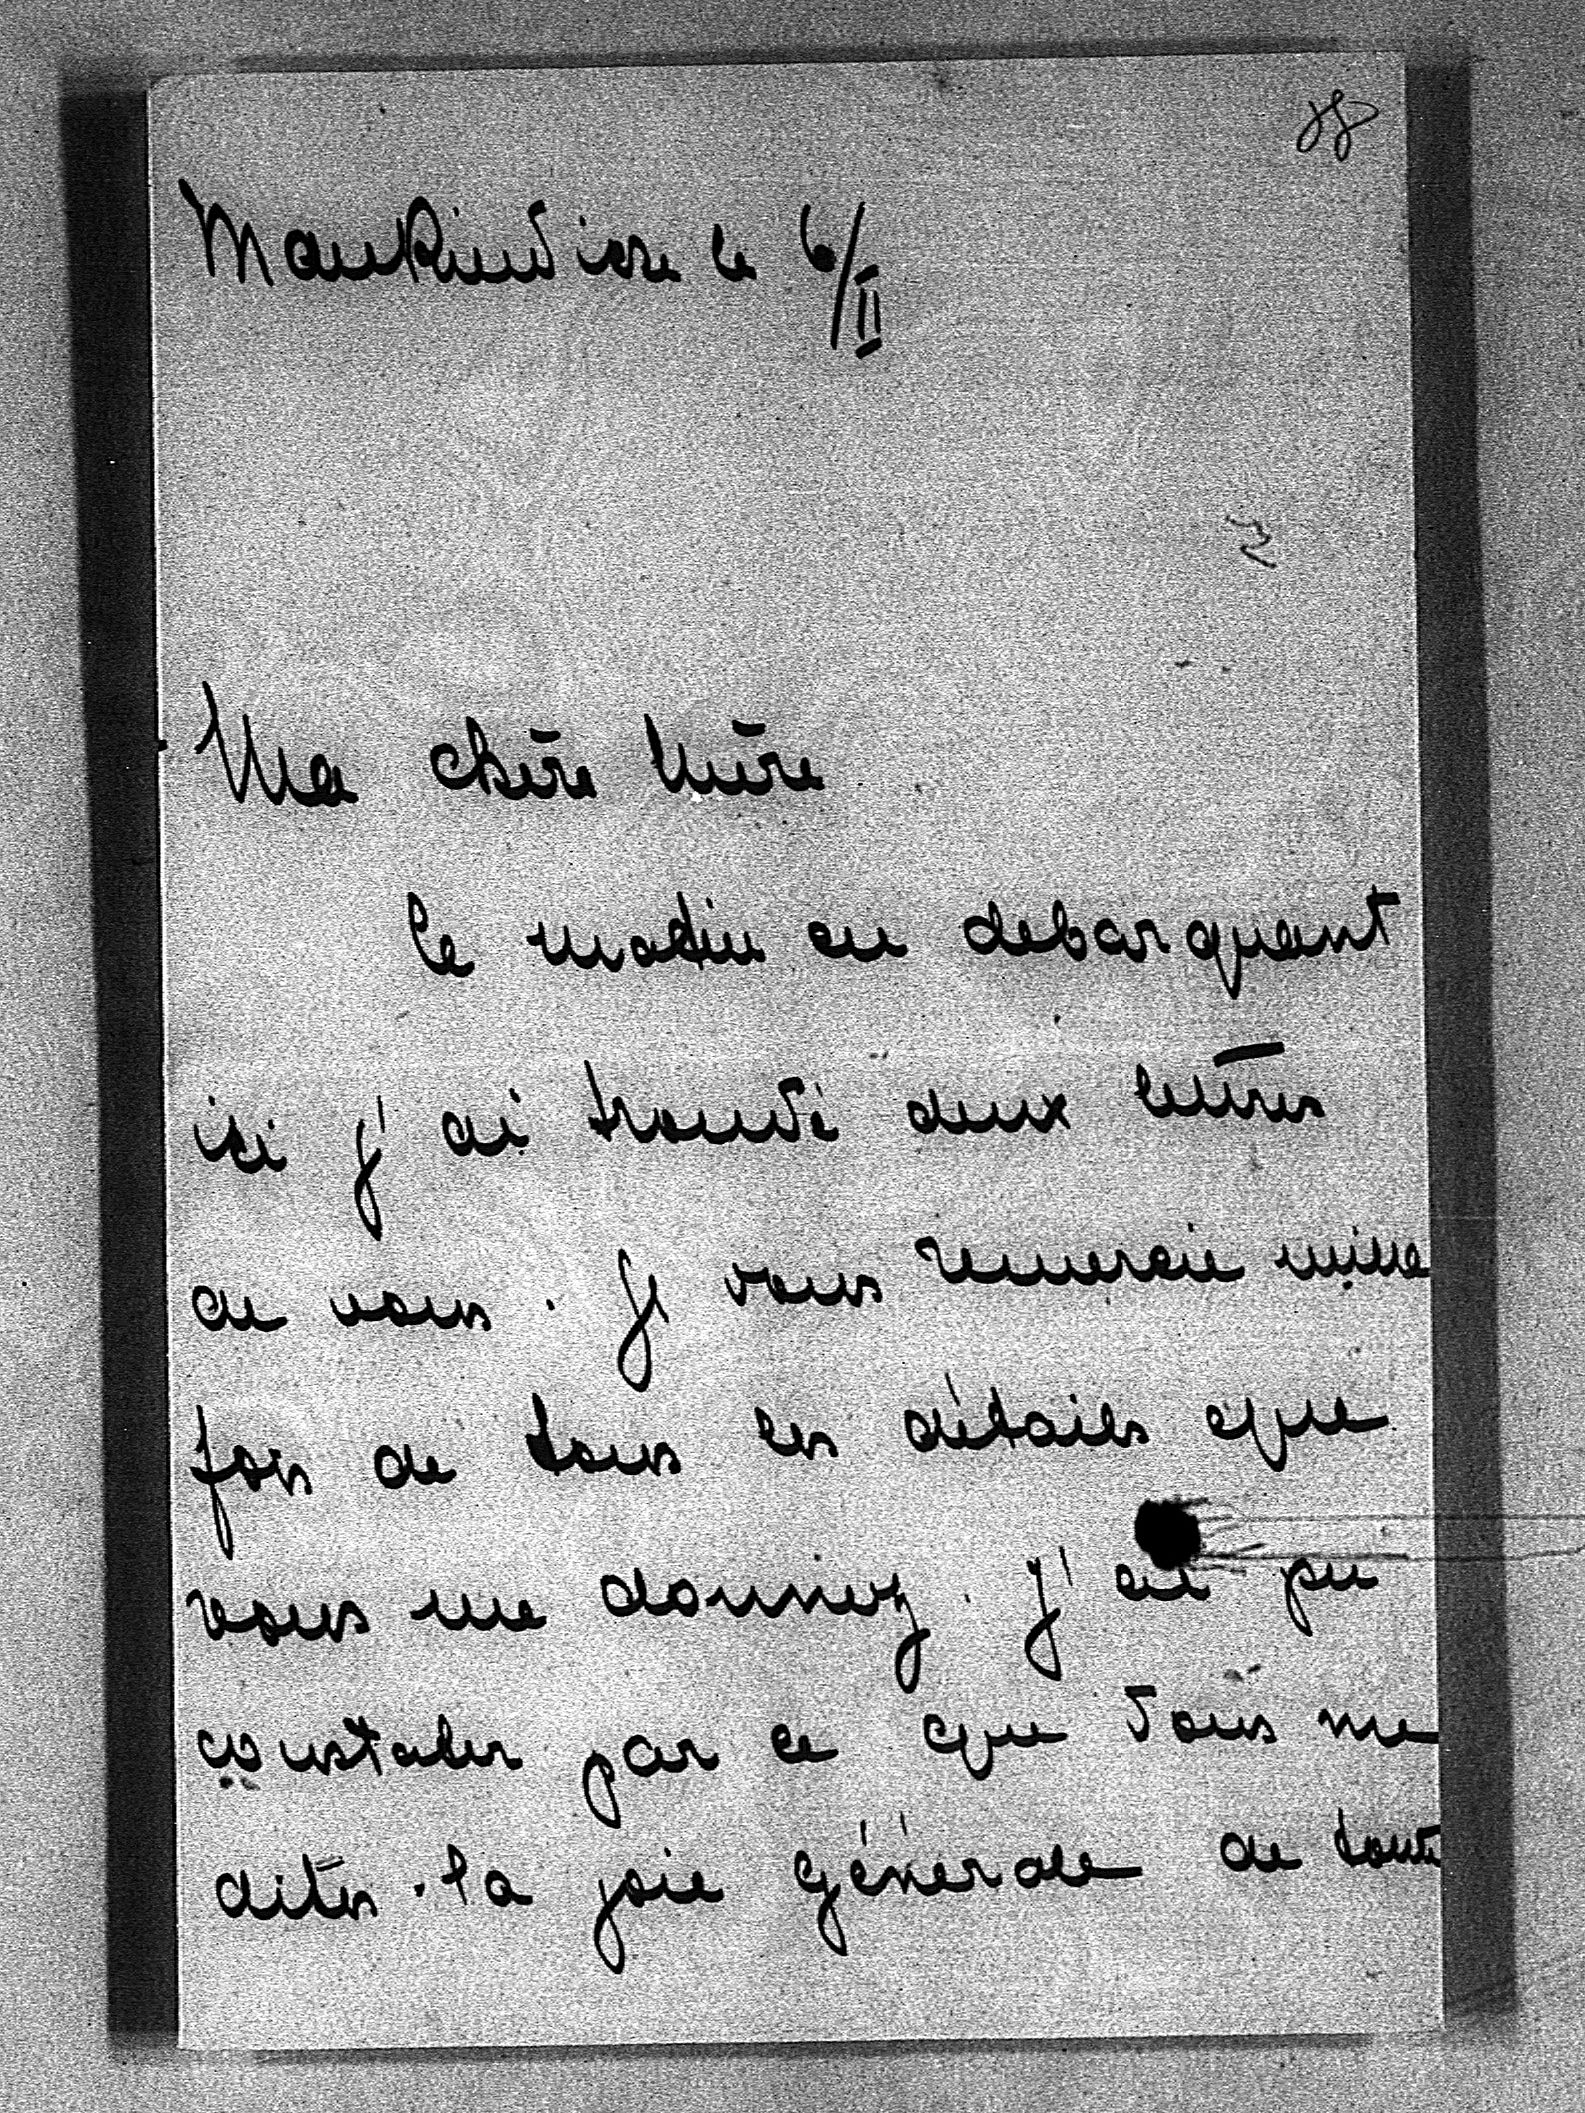 le 6/II
Ma chère mère
Ce matin en debarquant
ici j'ai trouvé deux lettres
de vous. Je vous remercie mille
fois de tous les détails que
vous me donnez. J'ai pu
constater par ce que vous me
dites la joie générale de toute